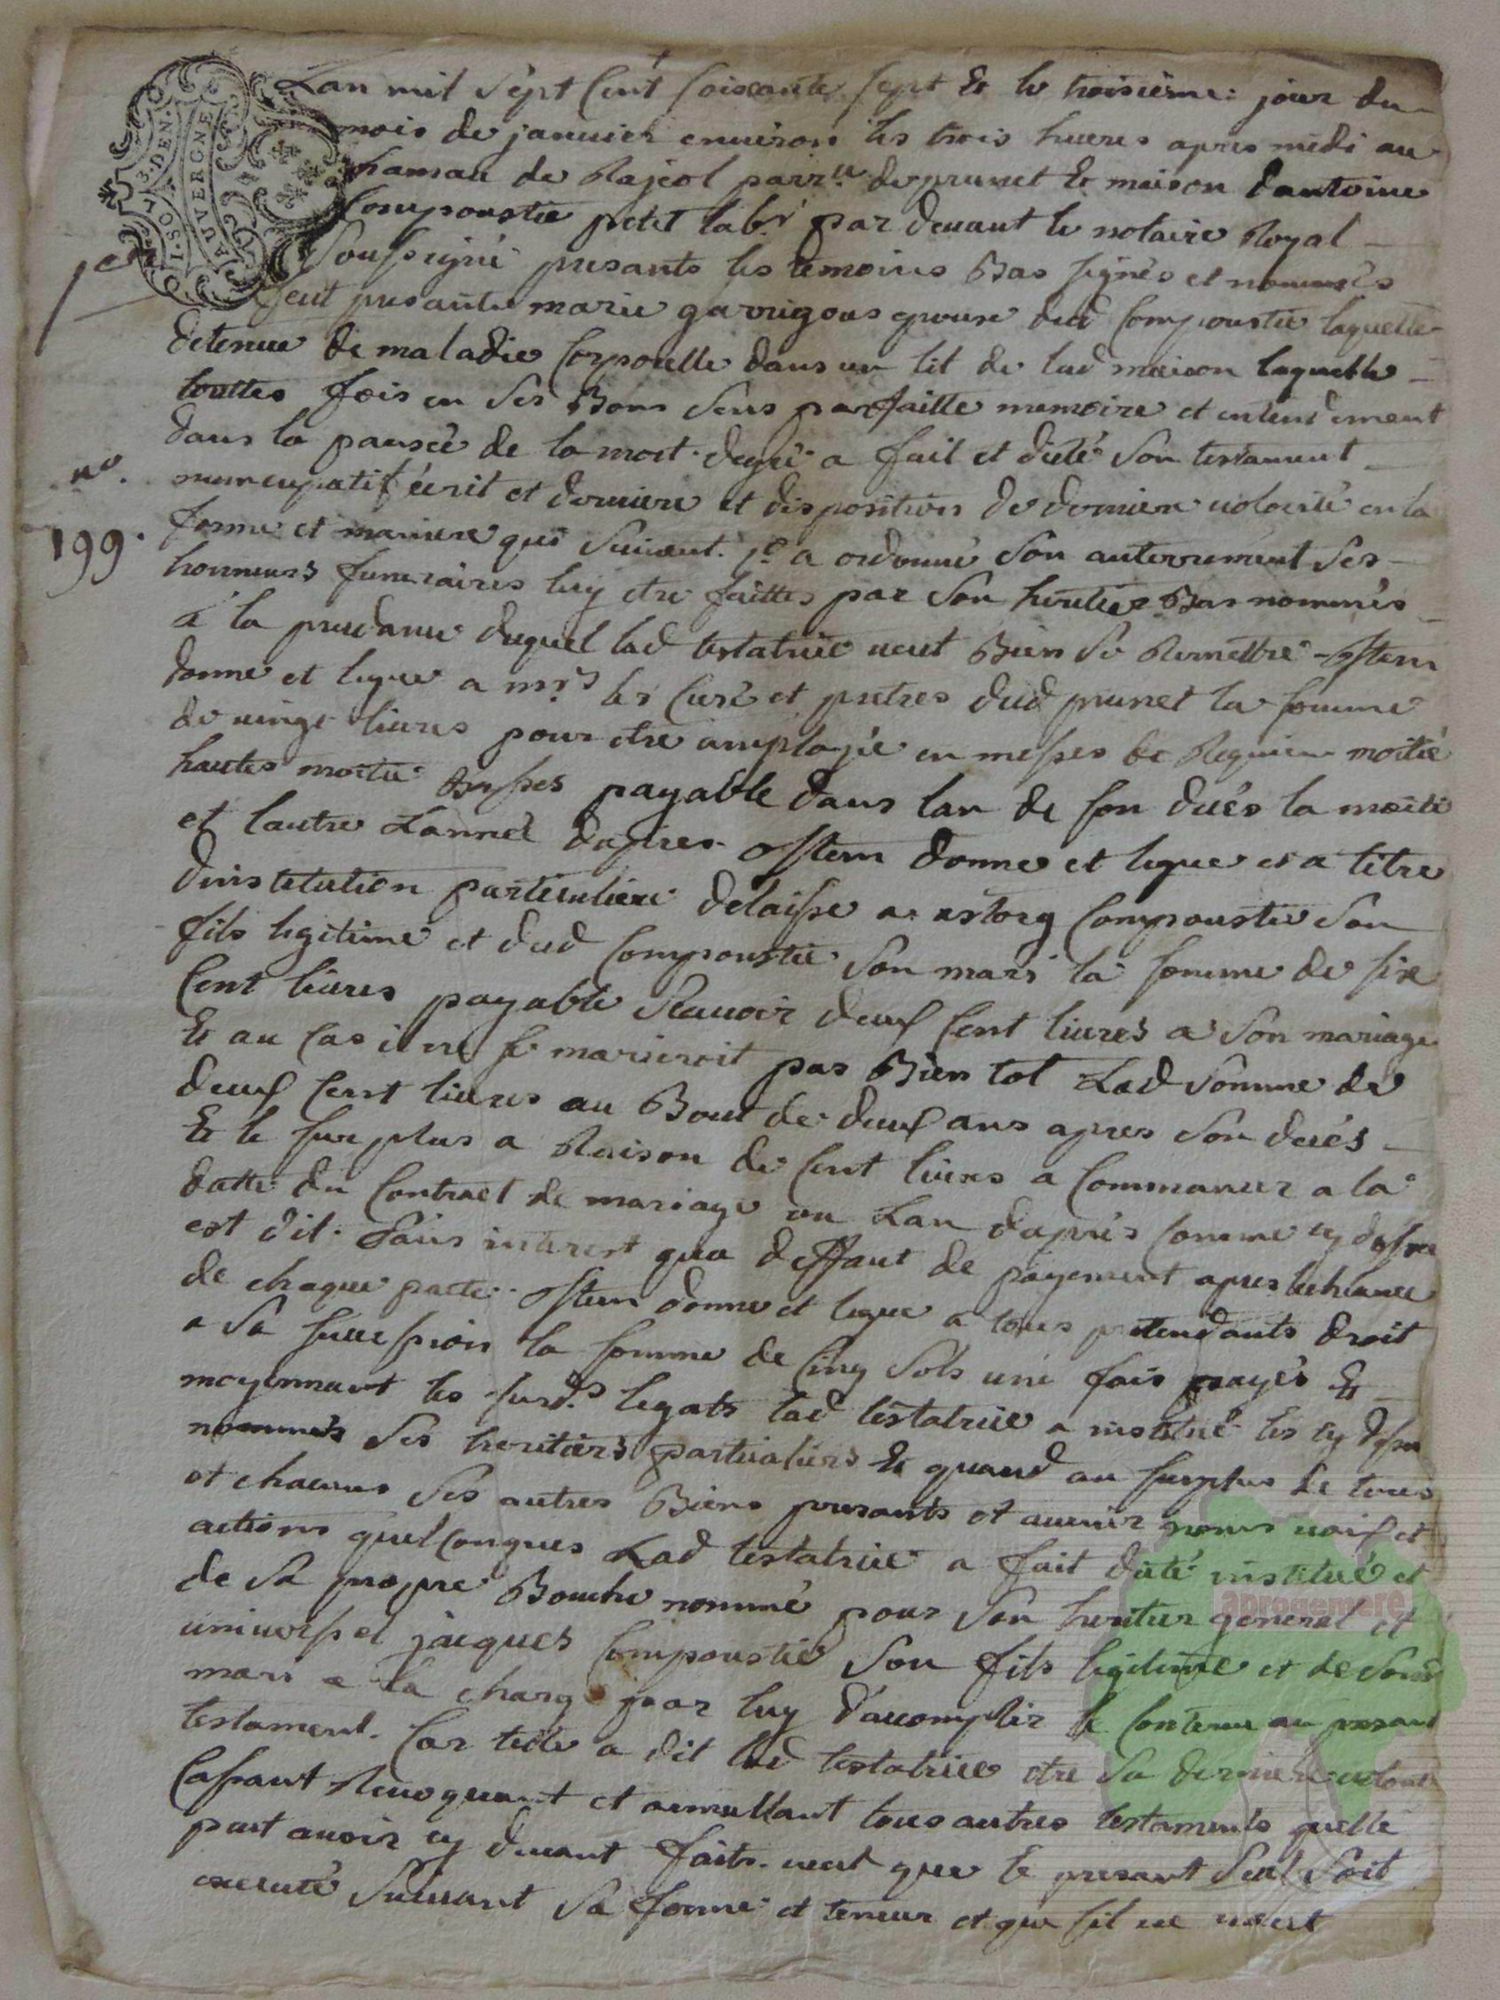 Lan mil sept Cent soisante sept & le troisieme jour du
mois de janvier environ les trois hueres apres midi au
hamau de Rajeol parr.lle de prunet & maison dantoine
Compoustie petit lab.r par devant le notaire Royal
Soussigné presants les temoins Bas signés et nommés
feut presante marie garrigous epouse dud Compoustie laquelle
detenue de maladie Corporelle dans un lit de lad maison laquelle
touttes fois en ses Bons sens parfaitte memoire et entendement
dans la pansée de la mort a fait et dicté son testament
nuncupatif écrit et derniere et disposition de derniere volonté en la
forme et maniere que suivent. p.o a ordonné son anterrement ses
honneurs funeraires luy etre faittes par son heritier Bas nommés
a la prudance duquel lad testatrice veut Bien se Remettre - Item
donne et legue a mrs les Curé et pretres dud prunet la somme
de vingt livres pour etre amployée en messes de Requiem moitié
hautes moitié Basses payable dans lan de son dués la moitié
et lautre Lannee dapres. Item donne et legue et a titre
dinstitution particuliere delaisse a astorg Compoustie son
fils legitime et dud Compoustie son mari la somme de sixe
Cent livres payable Scauoir deux Cent livres a son mariage
& au Cas il ne se marieroit pas Bien tot Lad somme de
deux Cent livres au Bout de deux ans apres son decés
& le surplus a Raison de Cent livres a Commancer a la
datte du Contract de mariage ou Lan dapres Comme cy dessu
est dit. Sans interest qua deffaut de payement apres lecheance
de chaque pacte. Item donne et legue a tous pretendants droit
a sa succession la somme de Cinq sols une fois payés &
moyennant les susd.s legats lad testatrice a institué les cy dessu
nommés ses heritiers particuliers & quand au surplus de tous
et chacuns ses autres Biens presants et auenir noms voix et
actions quelconques Lad testatrice a fait dicté institué et
de sa propre Bouche nommé pour son heritier general et
universsel jacques Compoustie son fils legitime et de sond
mari a la charge par luy d'acomplir le Contenu au presant
testament. Car telle a dit lad testatrice etre sa derniere volont
Cassant Revoquant et annullant tous autres testaments quelle
put auoir cy devant faits. veut que le presant seul soit
executé suivant sa forme et teneur et que sil ne vaut
1 SOL 3 DEN.
AUVERGNE
no.
199.
aprogemere